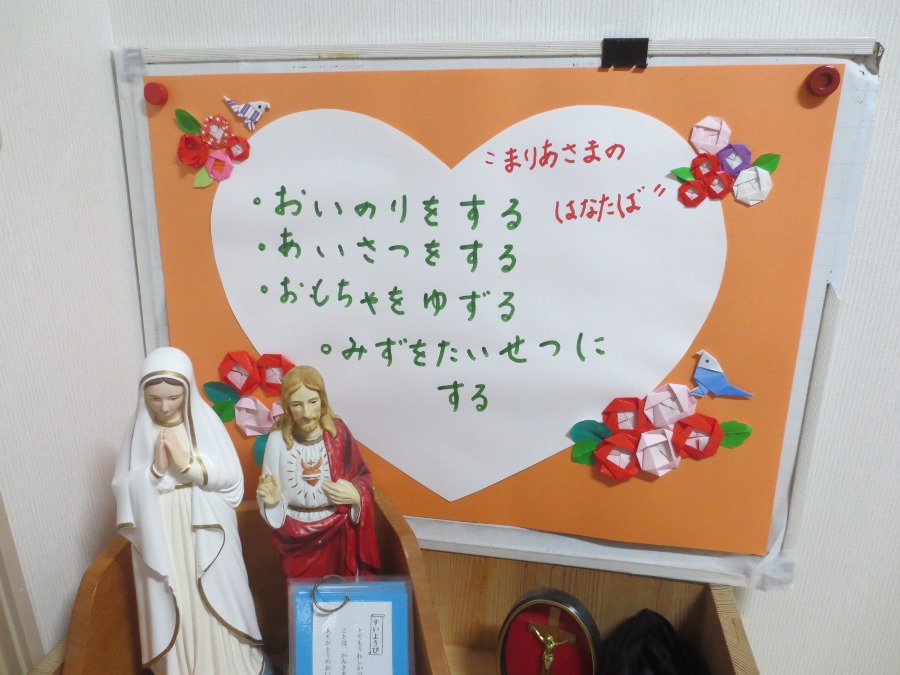 〝まりあさまの
はなたば〟
・おいのりをする
・あいさつをする
・おもちゃをゆずる
・みずをたいせつに
する
すいようび